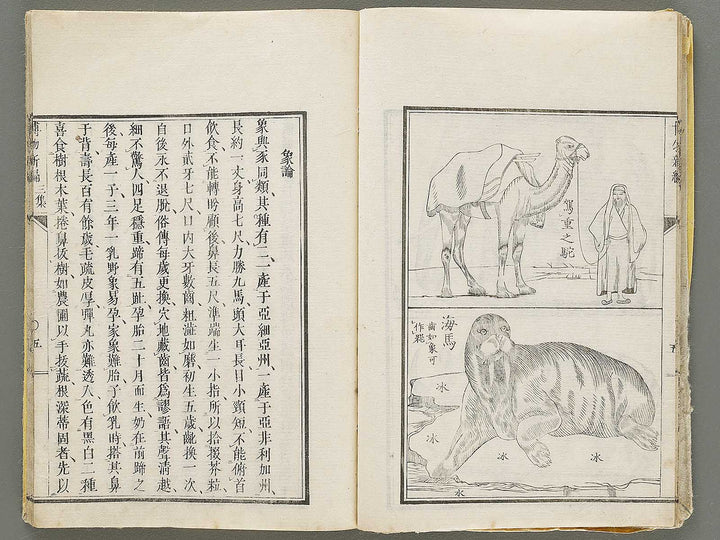 駕重之駝
海馬
齒如象可
作器
冰
冰
冰
冰
水
象論
象與豕同類、其種有二、一產于亞細亞州、一產于亞非利加州、
長約一丈、身高七尺、力勝九馬、頭大耳長、目小頸短、不能俯首
飲食、不能轉盼顧後、鼻長五尺、準端生一小指、所以拾掇芥粒、
口外貳牙七尺、口內大牙數齒、粗澁如磨、初生五歲、齔換一次、
自後永不退脫、俗傳每歲更換、穴地藏齒、皆爲謬語、其聲清越、
細不驚人、四足穩重、蹄有五趾、孕胎二十月而生、奶在前蹄之
後、每產一子、三年一乳、野象易孕、家象難胎、子飲乳時、搭其鼻
于背、壽長百有餘歲、毛疏皮厚、彈丸亦難透入、色有黑白二種、
喜食樹根木葉、捲鼻拔樹、如農圃以手拔蔬、根深蒂固者、先以
博物新編
三集
〇五